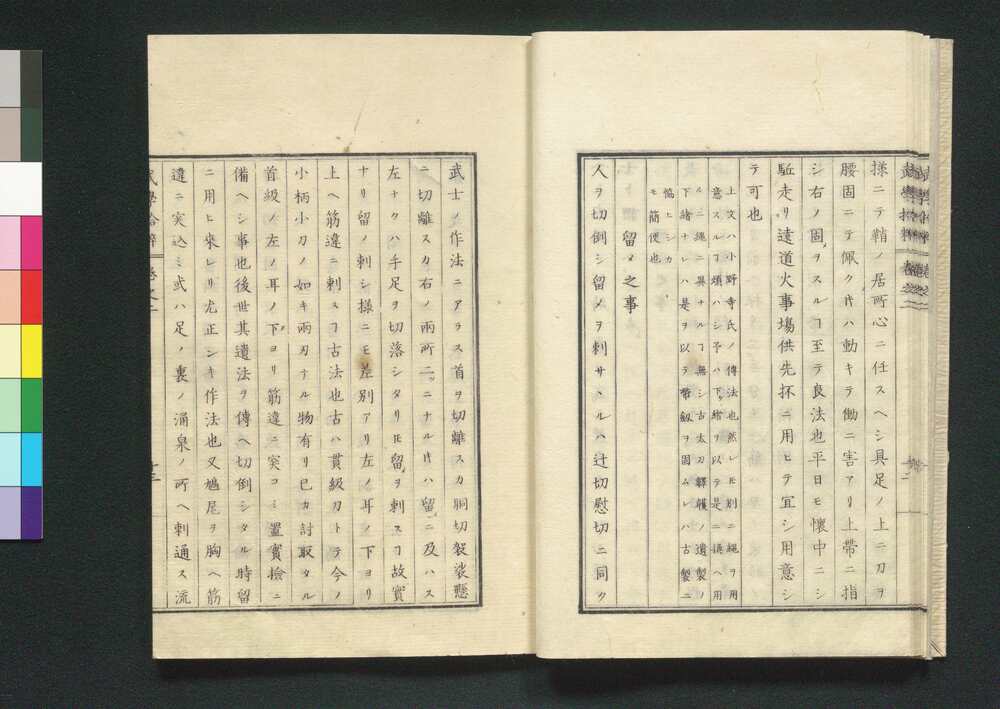 様ニテ鞘ノ居所心ニ任スヘシ具足ノ上ニ刀ヲ
腰固ニテ佩ク𪜈ハ動キテ働ニ害アリ上帯ニ指
シ右ノ固ヲスルヿ至テ良法也平日モ懐中ニシ
駈走リ遠道火事塲供先抔ニ用ヒテ宜シ用意シ
テ可也
上文ハ小野寺氏ノ傳法也然レ𪜈別ニ縄ヲ用
意スルヿ煩ハシ予ハ下緒ヲ以テ是ニ換ヘ用
ルニ縄ニ異ナルヿ無シ古太刀韘韄ノ遺製ノ
下緒ナレハ是ヲ以テ帯劔ヲ固ムレハ古製ニ
協ヒシカ
モ簡便也
留メ之事
人ヲ切倒シ留メヲ刺サヽルハ辻切慰切ニ同ク
武士ノ作法ニアラス首ヲ切離スカ胴切袈裟懸
ニ切離スカ右ノ兩所ニニナルハ留ニ及ハス
左ナクハ手足ヲ切落シタリ𪜈留ヲ刺スヿ故實
ナリ留ノ刺シ様ニモ差別アリ左ノ耳ノ下ヨリ
上ヘ筋違ニ刺スヿ古法也古ハ貫級刀トテ今ノ
小柄小刀ノ如キ兩刃ナル物有リ已カ討取タル
首級ノ左ノ耳ノ下ヨリ筋違ニ突コミ置實撿ニ
備ヘシ事也後世其遺法ヲ傳ヘ切倒シタル時留
ニ用ヒ來レリ尤正シキ作法也又鳩尾ヲ胸ヘ筋
違ニ突込ミ或ハ足ノ裏ノ涌泉ノ所ヘ刺通ス流